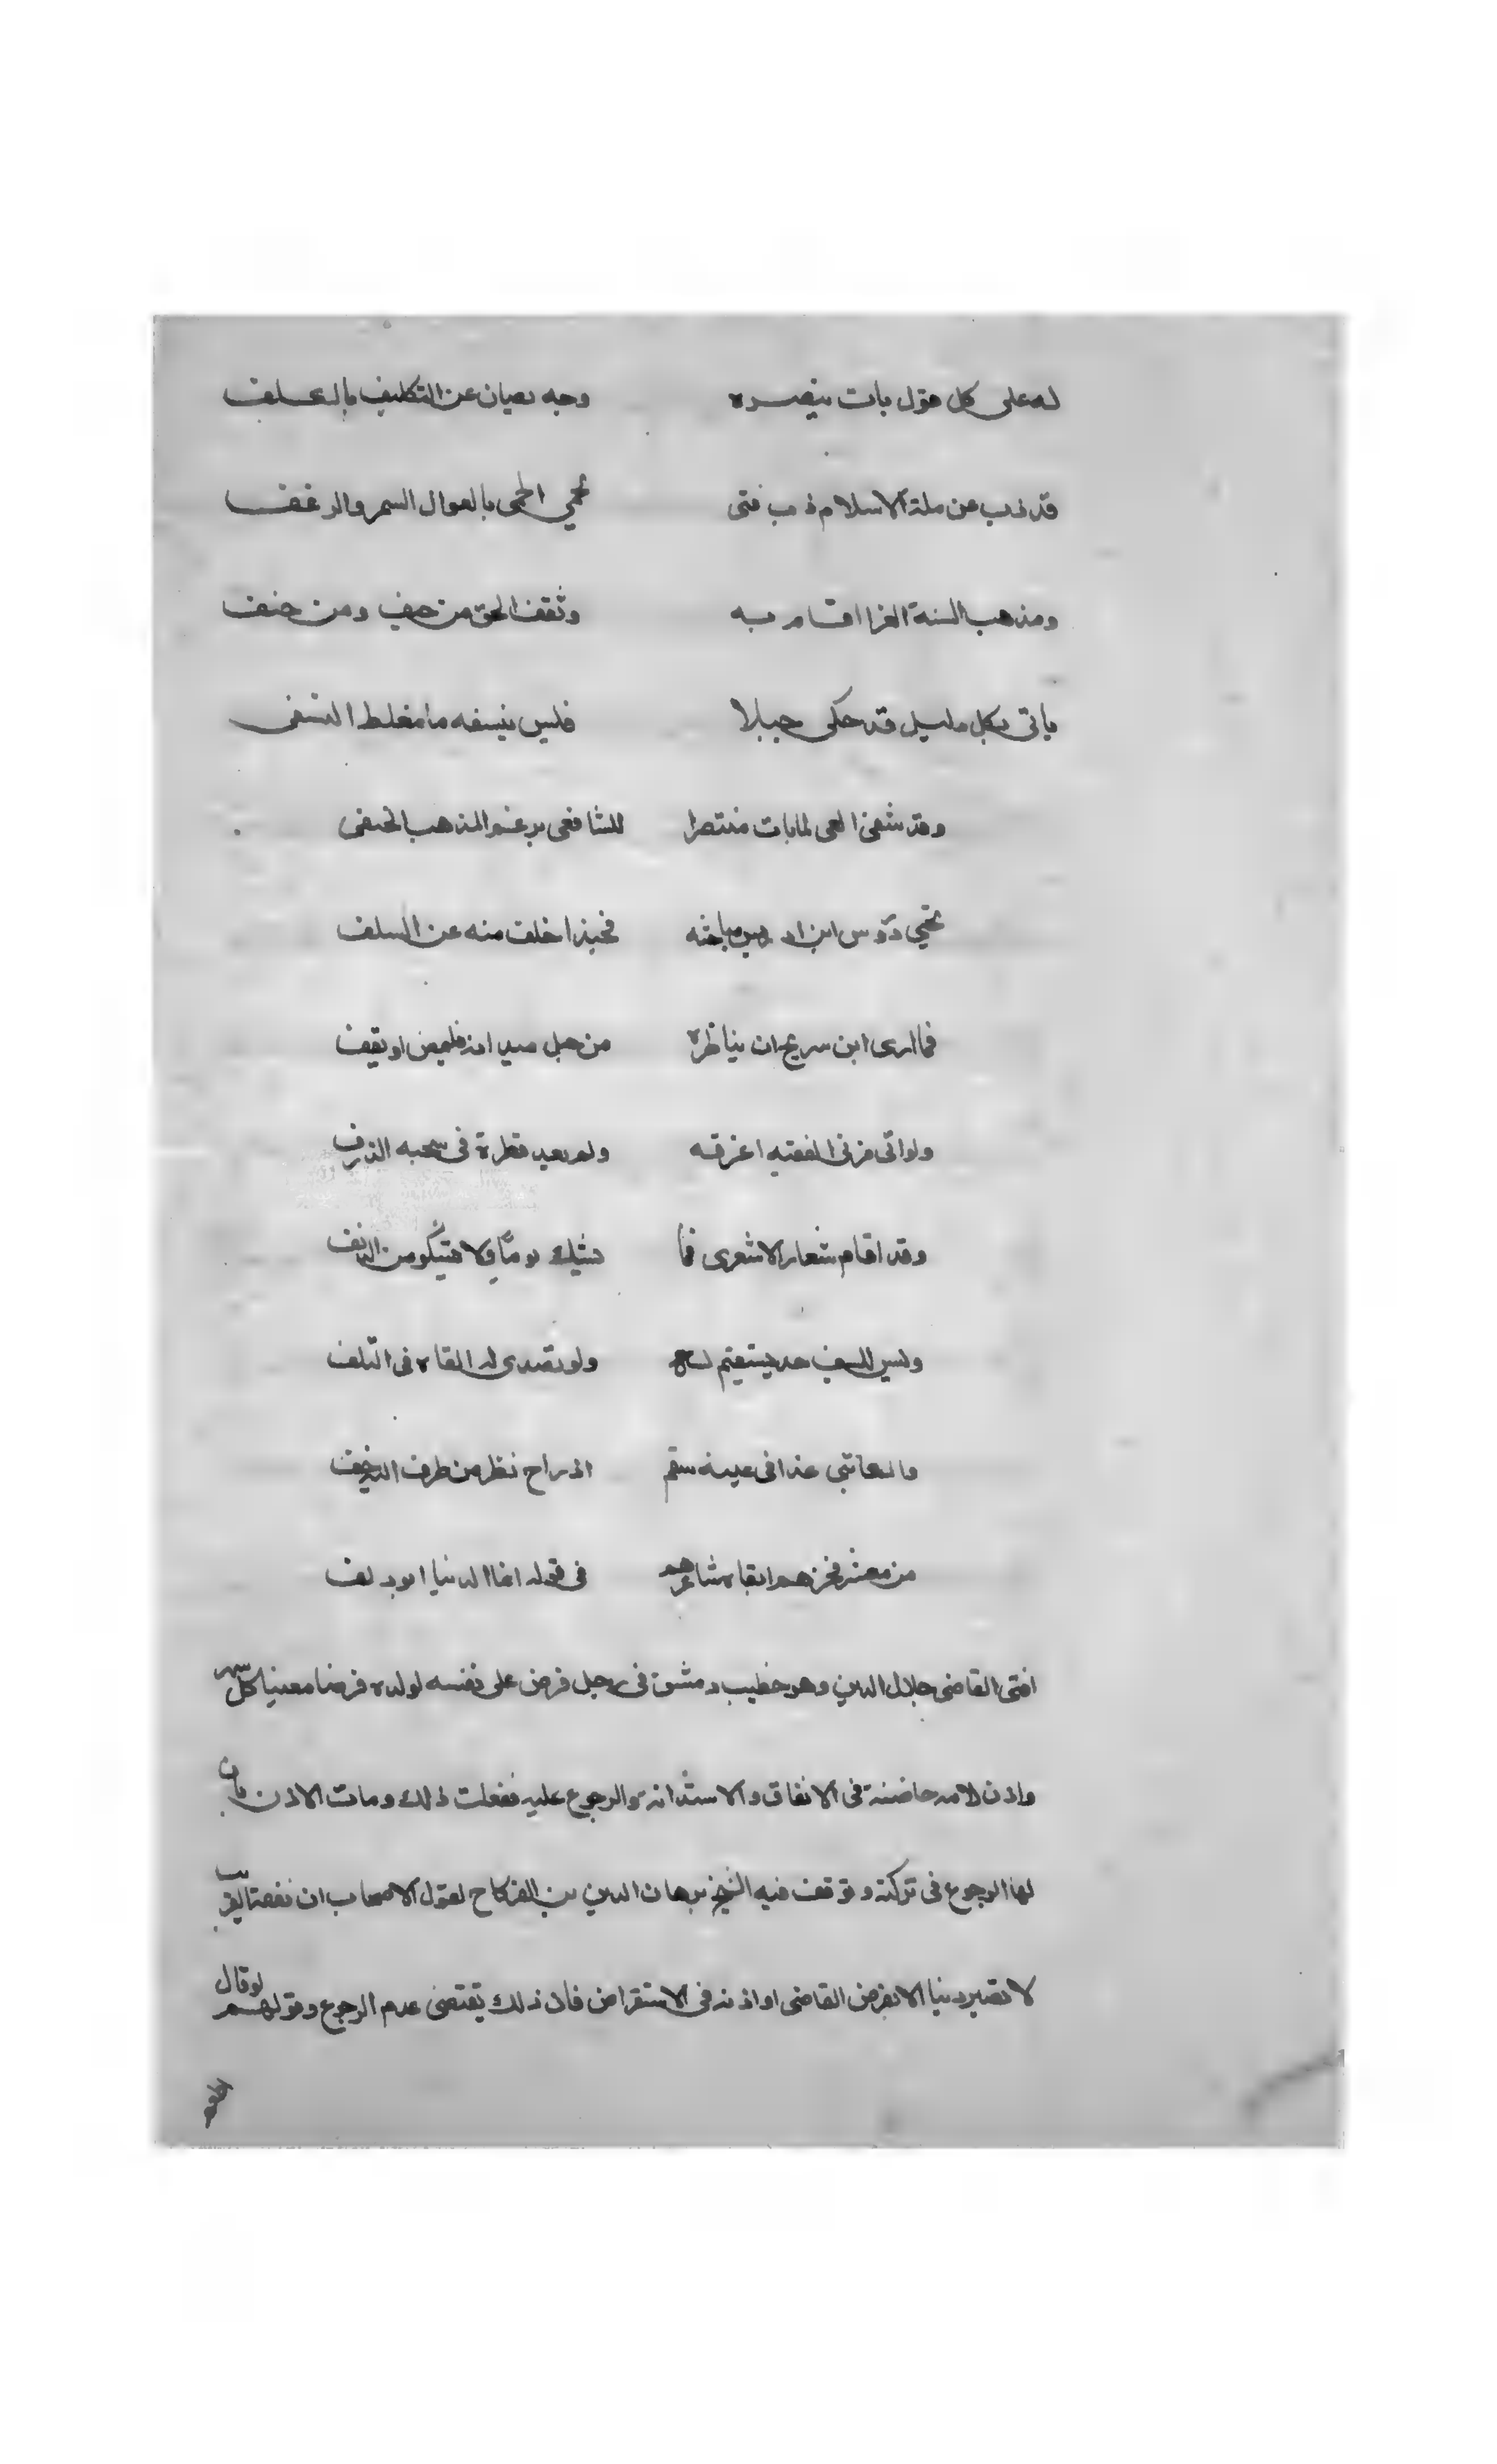 له على كل قول بات ينصره وجه يصان عن التكليف بالكلف
قد ذب عن ملة الاسلام ذب فتى يحمي الحمى بالعوال السمر والرعف
ومذهب السنة الغرا اقام به وثقف الحق من حيف ومن جنف
ياتى بكل دليل قد حكى جبلا فليس ينسفه ما مغلط النسفى
وقد شفى العى لما بات منتصرا للشافعى برغم المذهب الحنفى
تحيي دروس ابن ادريس مباحثه فحبذا خلف منه عن السلف
فما ارى ابن سريج ان يناظره من خيل ميدانه فليمض او يقف
ولو اتى مزنى الفقه اغرقه ولم يعد قطرة فى سحبه الذرف
وقد اقام شعار الاشعرى فما يشك يوما ولا يشكو من الزيف
وليس للسيف حد يستقيم له ولو تصدى له القاه فى التلف
والكاتبى غدا فى عينه سقم اذ راح ينظر من طرف اليه خفى
من معشر فخرهم ابقاه شاعرهم فى قوله انما الدنيا ابو دلف
افتى القاضى جلال الدين وهو خطيب دمشق فى رجل فرض على نفسه لولده فرضا معينا كل شهر
واذن لامه حاضنته فى الانفاق والاستدانة والرجوع عليه ففعلت ذلك ومات الاذن بان
لها الرجوع فى تركته وتوقف فيه الشيخ برهان الدين بن الفركاح لقول الاصحاب ان نفقة القريب
لا تصير دينا الا بفرض القاضى او اذنه فى الاستقراض فان ذلك يقتضى عدم الرجوع وقولهم لو قال
اطعم